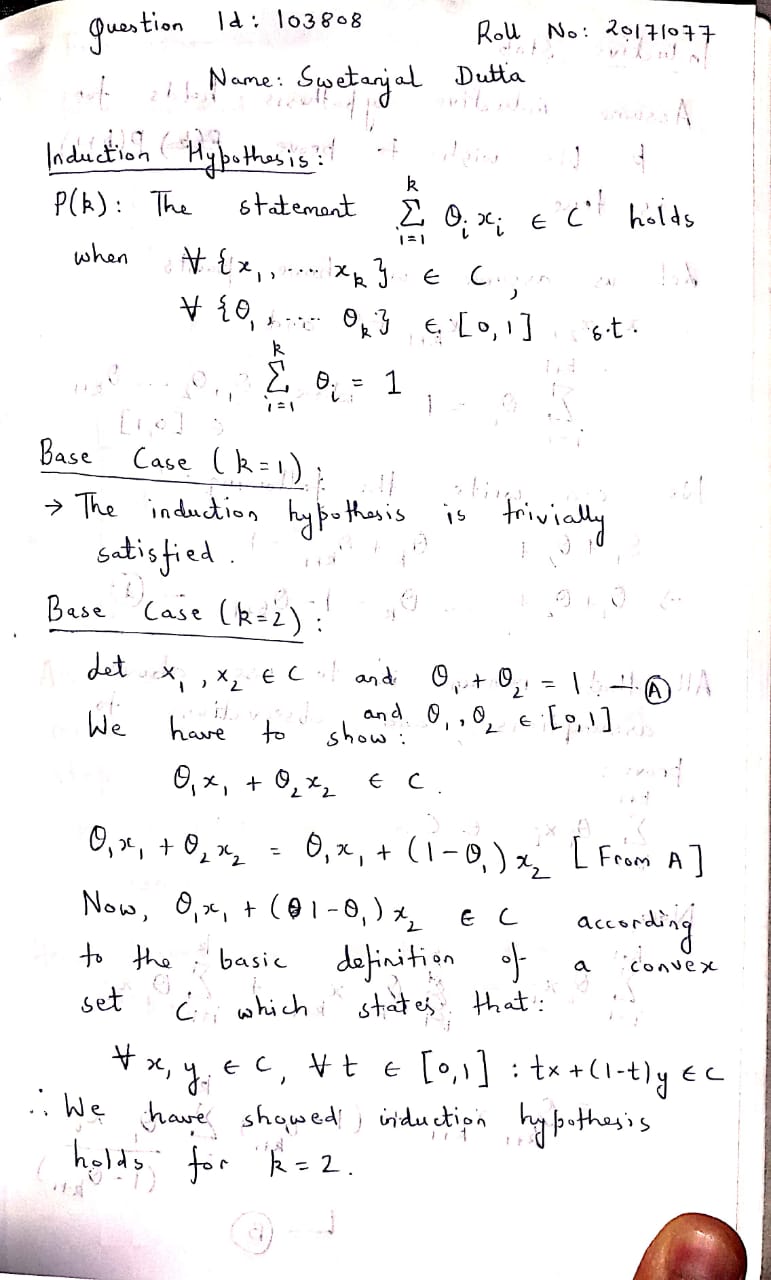 Question Id: 103808
Roll No: 20171077
Name: Swetanjal Dutta
Induction Hypothesis:
P(k): The statement \sum_{i=1}^{k} θ_i x_i ∈ C holds
when ∀ {x_1, .... x_k} ∈ C,
∀ {θ_1, .... θ_k} ∈ [0,1] s.t.
\sum_{i=1}^{k} θ_i = 1
Base Case (k=1):
→ The induction hypothesis is trivially
satisfied.
Base Case (k=2):
Let x_1, x_2 ∈ C and θ_1 + θ_2 = 1 — Ⓐ
and θ_1, θ_2 ∈ [0,1]
We have to show:
θ_1 x_1 + θ_2 x_2 ∈ C.
θ_1 x_1 + θ_2 x_2 = θ_1 x_1 + (1-θ_1) x_2 [From A]
Now, θ_1 x_1 + (1-θ_1) x_2 ∈ C according
to the basic definition of a convex
set C which states that:
∀ x, y ∈ C, ∀ t ∈ [0,1] : tx + (1-t)y ∈ C
∴ We have showed induction hypothesis
holds for k = 2.